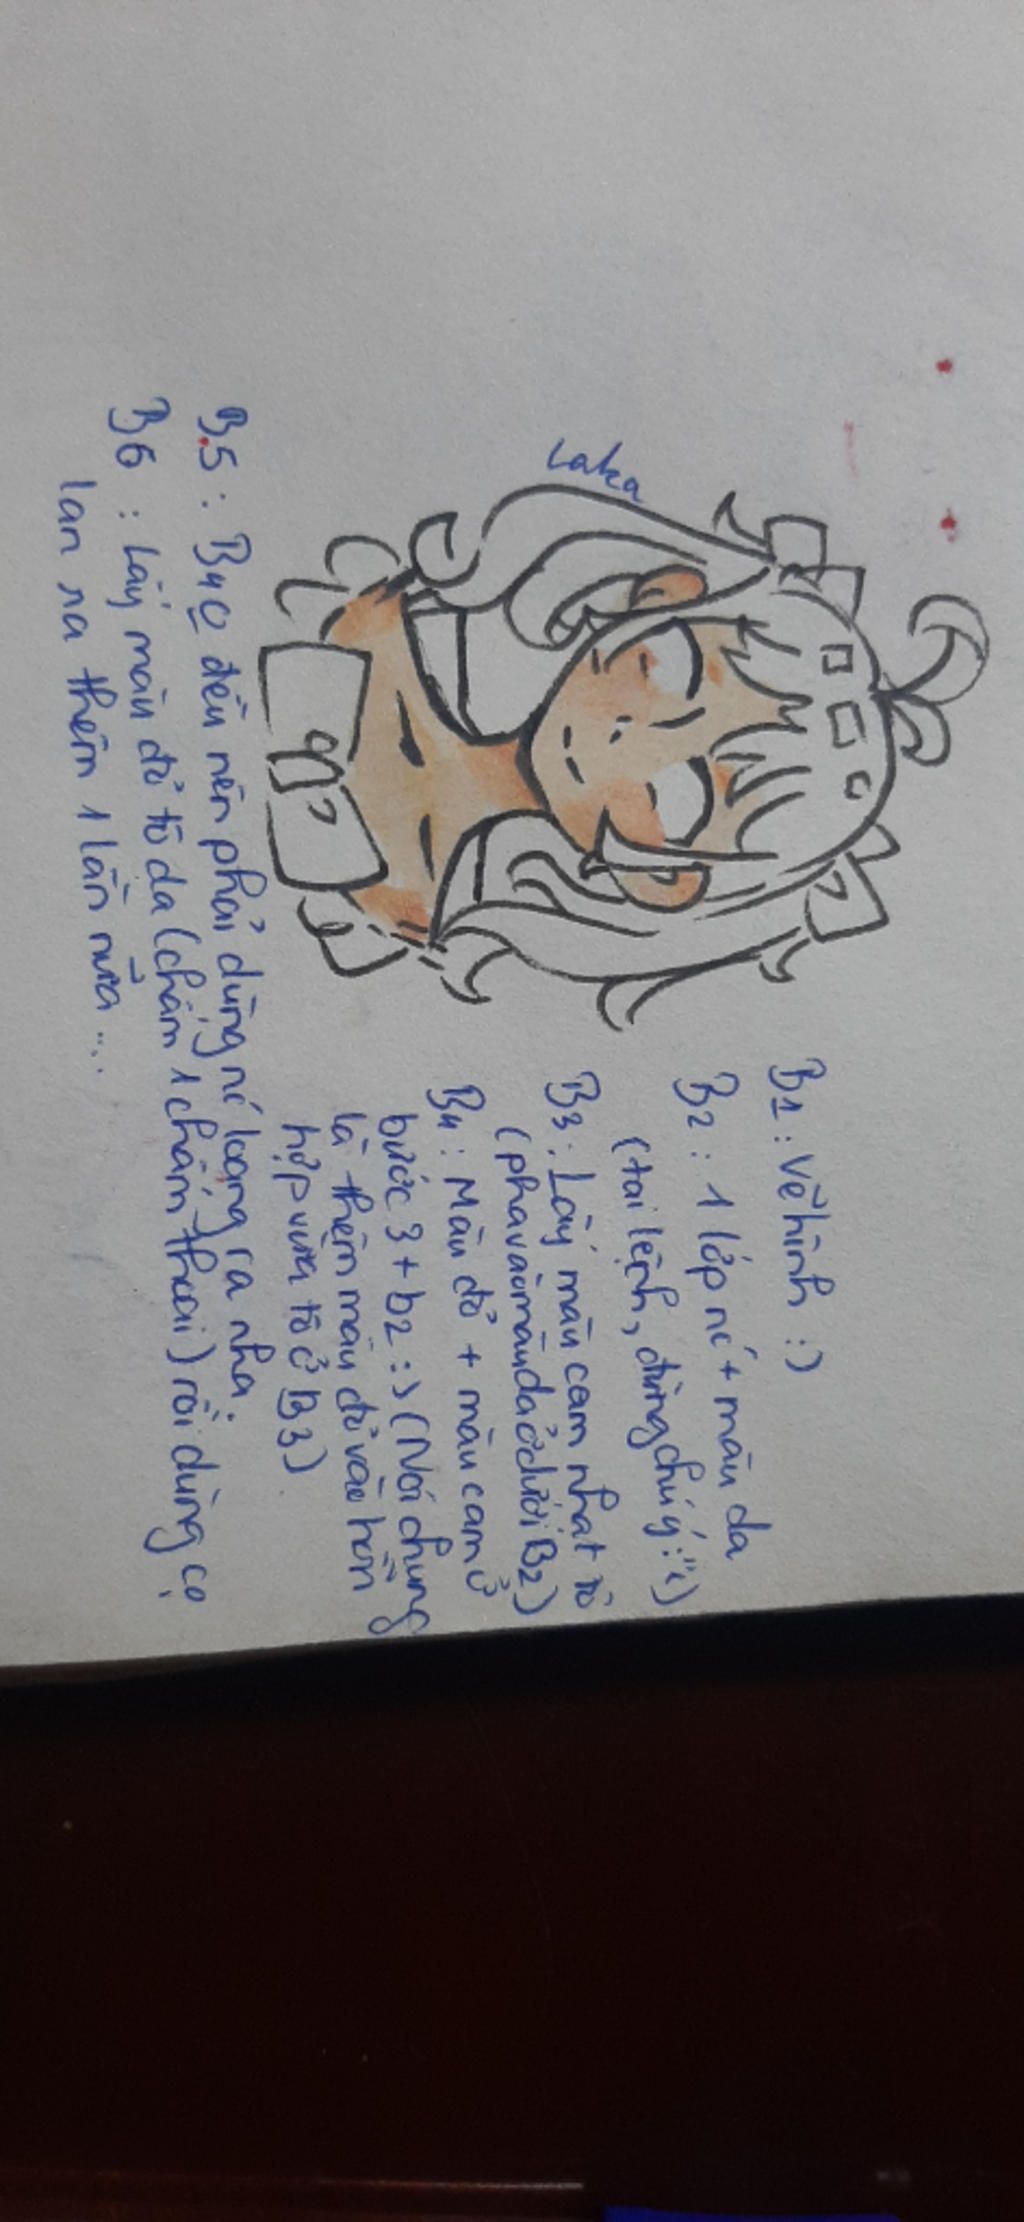 Laka
B1 : Vẽ hình :)
B2 : 1 lớp nc' + màu da
(tai lệch, đừng chú ý :"))
B3 : Lấy màu cam nhạt tô
(pha vào màu da ở dưới B2)
B4 : Màu đỏ + màu cam ở
bước 3 + b2 :) (Nói chung
là thêm màu đỏ vào hỗn
hợp vừa tô ở B3)
B.5 : B4 đều nên phải dùng nc' loang ra nha.
B6 : Lấy màu đỏ tô da (chấm 1 chấm thoai) rồi dùng cọ
lan ra thêm 1 lần nữa...